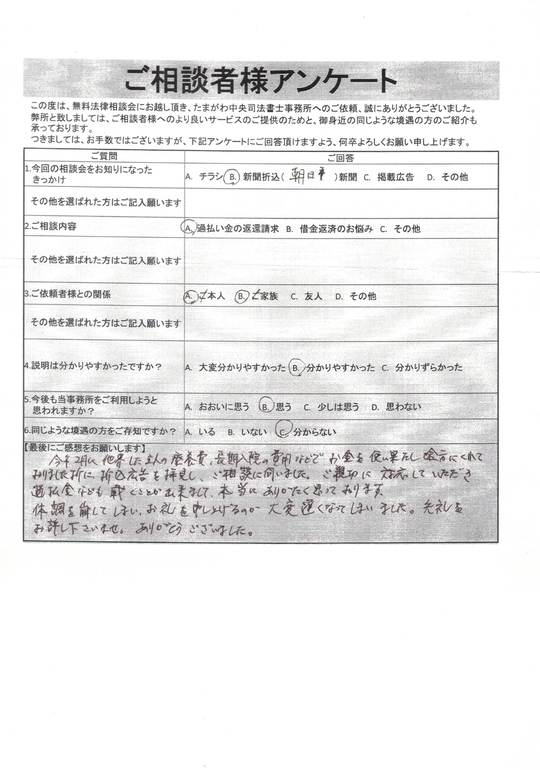 ご相談者様アンケート
この度は、無料法律相談会にお越し頂き、たまがわ中央司法書士事務所へのご依頼、誠にありがとうございました。
弊所と致しましては、ご相談者様へのより良いサービスのご提供のためと、御身近の同じような境遇の方のご紹介も
承っております。
つきましては、お手数ではございますが、下記アンケートにご回答頂けますよう、何卒よろしくお願い申し上げます。
ご質問 ご回答
1.今回の相談会をお知りになった
きっかけ
A. チラシ B. 新聞折込( 朝日 )新聞 C. 掲載広告 D. その他
その他を選ばれた方はご記入願います
2.ご相談内容 A. 過払い金の返還請求 B. 借金返済のお悩み C. その他
その他を選ばれた方はご記入願います
3.ご依頼者様との関係 A. ご本人 B. ご家族 C. 友人 D. その他
その他を選ばれた方はご記入願います
4.説明は分かりやすかったですか? A. 大変分かりやすかった B. 分かりやすかった C. 分かりずらかった
5.今後も当事務所をご利用しようと
思われますか?
A. おおいに思う B. 思う C. 少しは思う D. 思わない
6.同じような境遇の方をご存知ですか? A. いる B. いない C. 分からない
【最後にご感想をお願いします】
今年2月に他界した主人の療養費、長期入院の費用などでお金を使い果たし途方にくれて
おりました折に折込広告を拝見し、ご相談に伺いました。ご親切に対応していただき
過払金なども戴くことが出来まして、本当にありがたく思っております。
体調を崩してしまい、お礼を申し上げるのが大変遅くなってしまいました。失礼を
お許し下さいませ。ありがとうございました。